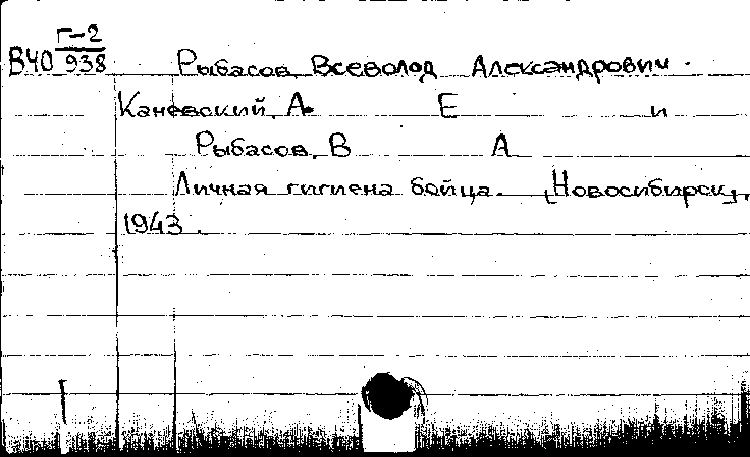 Г-2
В40 938 Рыбасов, Всеволод Александрович.
Каневский, А. Е и
Рыбасов, В А
Личная гигиена бойца. [Новосибирск],
1943.